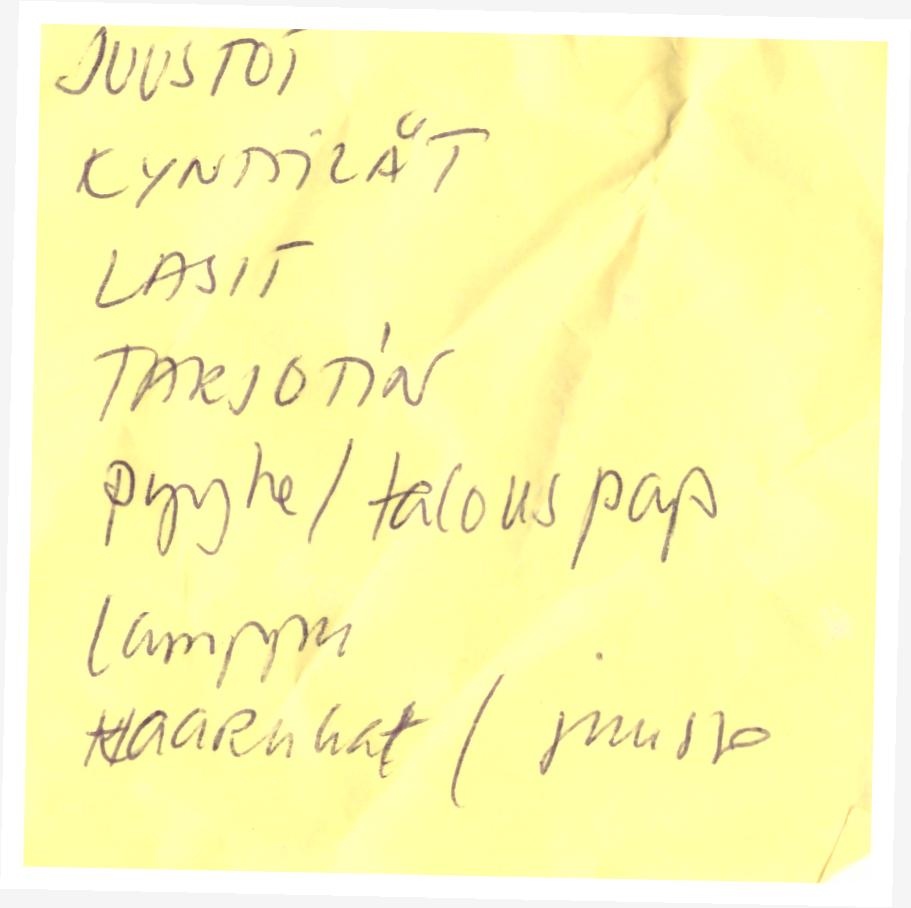 JUUSTOT
KYNTTILÄT
LASIT
TARJOTIN
pyyhe / talouspap
Lamppu
HAARUKAT / juusto